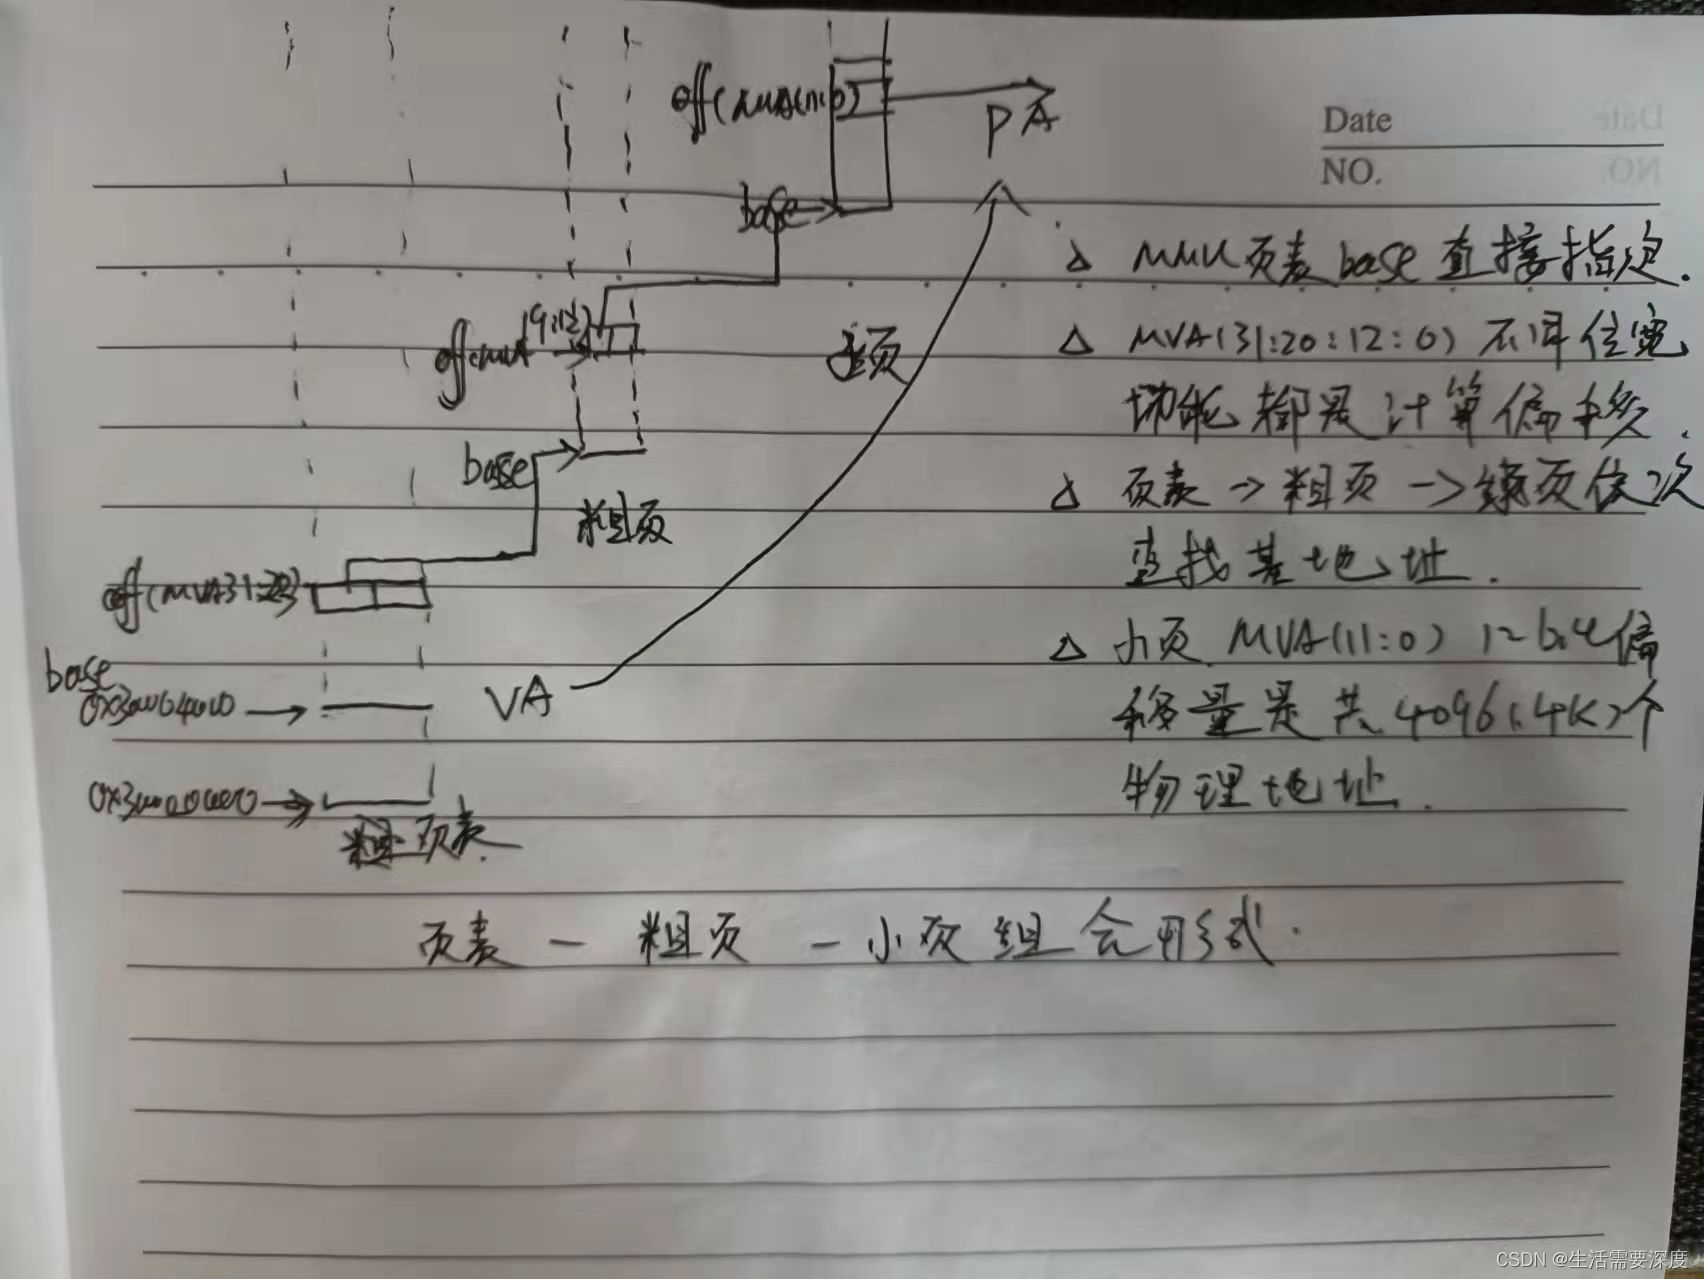 off(MVA(11:0)
PA
Date
NO.
base
△ MMU页表base直接指定.
off(MVA(19:12)
页
△ MVA(31:20:12:0)不同位宽
功能都是计算偏移.
base
△ 页表→粗页→页依次
粗页
查找基地址.
off(MVA31:20)
△ 小页 MVA(11:0) 12bit偏
base
VA
移量是共4096(4K)个
物理地址.
页表
页表 — 粗页 — 小页 组合形式.
CSDN @生活需要深度